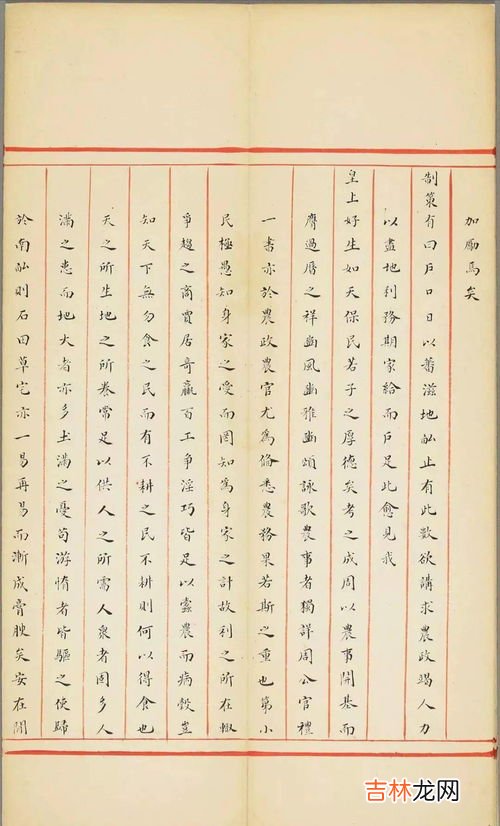 加勵焉矣
制策有曰戶口日以蕃滋地畝止有此數欲講求農政竭人力
以盡地利務期家給而戶足此愈見我
皇上好生如天保民若子之厚德矣考之成周以農事開基而
膺過曆之祥豳風豳雅豳頌詠歌農事者獨詳周公官禮
一書亦於農政農官尤為備悉農務果若斯之重也第小
民極愚知身家之受而罔知為身家之計故利之所在輒
爭趨之商賈居奇贏百工爭淫巧皆足以蠹農而病穀豈
知天下無勿食之民而有不耕之民不耕則何以得食也
天之所生地之所養常足以供人之所需人眾者固多人
滿之患而地大者亦多土滿之憂苟游惰者皆驅之使歸
於南畝則石田草宅亦一易再易而漸成膏腴矣安在開
吉林龙网